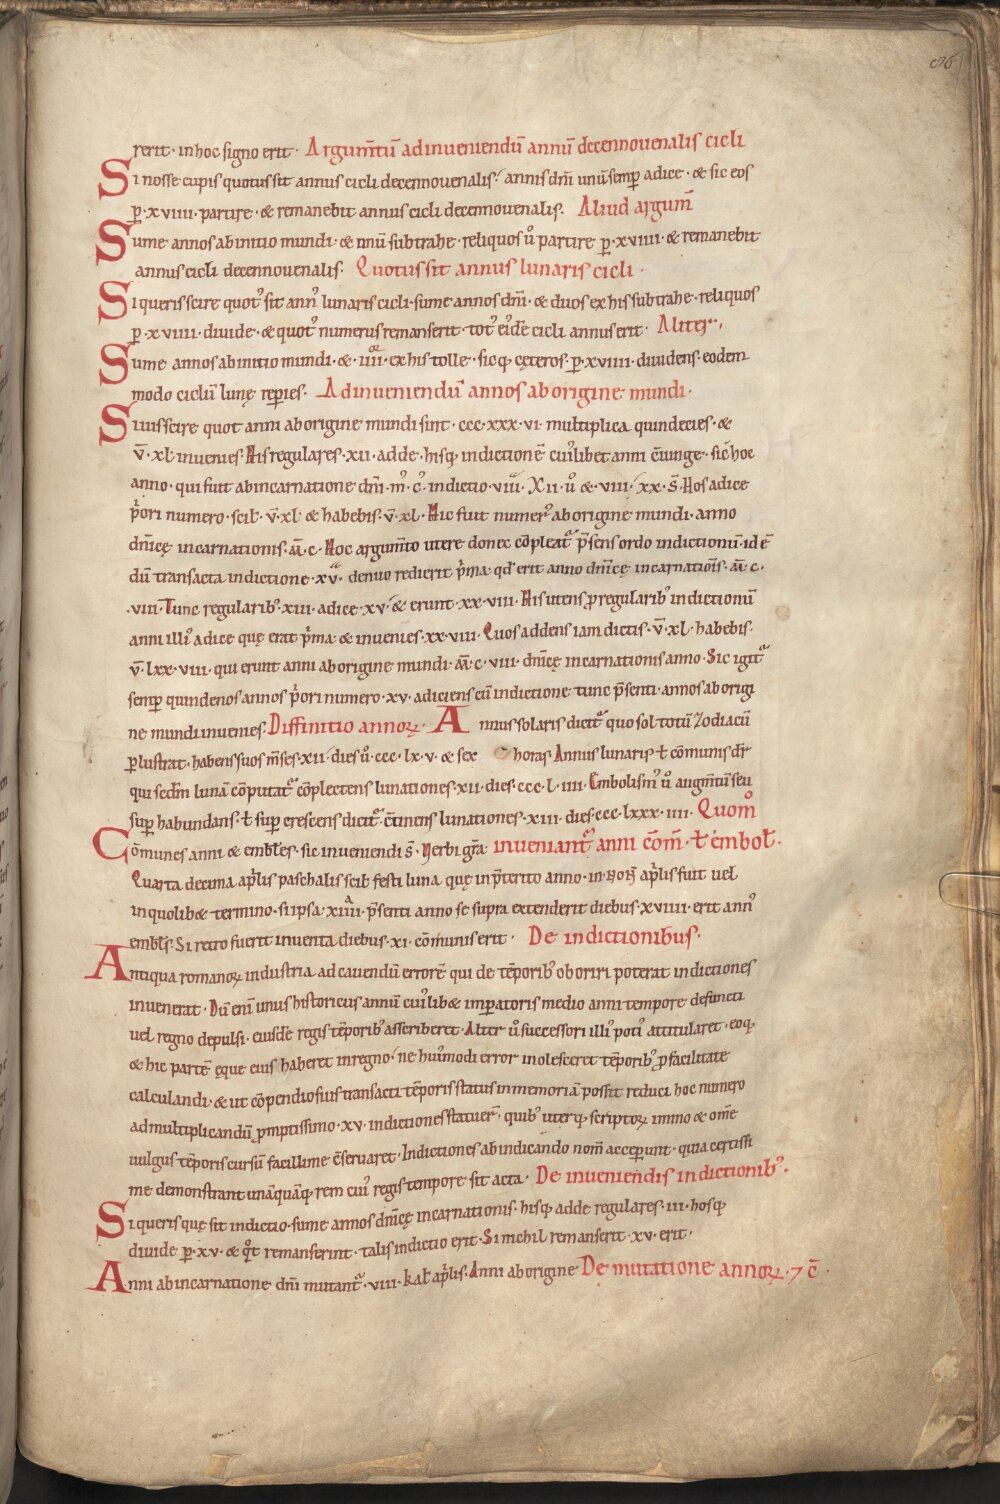 96
rerit· in hoc signo erit· Argum̄tū ad inueniendū annū decennouenalis cicli
Si nosse cupis quotus sit annus cicli decennouenalis· annis dn̄i unū semꝑ adice· & sic eos
ꝑ·xviiii· partire· & remanebit annus cicli decennouenalis. Aliud argum̄
Sume annos ab initio mundi· & unū subtrahe· reliquos ů partire ꝑ·xviiii· & remanebit
annus cicli decennouenalis· Quotus sit annus lunaris cicli·
Si queris scire quot᾿ sit ann᾿ lunaris cicli· sume annos dn̄i· & duos ex his subtrahe· reliquos
ꝑ·xviiii· diuide· & quot᾿ numerus remanserit· tot᾿ eiu᾿dē cicli annus erit· Aliter·
Sume annos ab initio mundi· & ·iiii᷒ʳ· ex his tolle· sicq; cęteros· ꝑ·xviiii· diuidens· eodem
modo ciclū lunę repperies· Ad inueniendū annos ab origine mundi·
Si uis scire quot anni ab origine mundi sint· ccc·xxx·vi· multiplica quindecies· &
v̄·xl· inuenies· His regulares·xii· adde· hisq; indictionē cui᾿libet anni c̄iunge· sic̄ hoc
anno· qui fuit ab incarnatione dn̄i·m᾿·c᾿· indictio·viii· Xii·ů &·viii·xx·s̄· Hos adice
p̓ori numero· scil̄·v̄·xl· & habebis·v̄·xl· Hic fuit numer᾿ ab origine mundi· anno
dn̄icę incarnationis·ā·c· Hoc argum̄to utere donec cōpleat᷑ p̄sens ordo indictionū· id ē
dū transacta indictione·xv· denuo redierit p̓ma· qd̄ erit anno dn̄icę incarnatiōis·ā·c·
·viii· Tunc regularib᾿·xiii· adice·xv· & erunt·xx·viii· His utens ꝓ regularib᾿ indictionū
anni illi᾿ adice quę erat p̓ma & inuenies·xx·viii· Quos addens iam dictis·v̄·xl· habebis·
v̄·lxx·viii· qui erunt anni ab origine mundi·ā·c·viii· dn̄icę incarnationis anno· Sic igit᷑
semꝑ quindenos annos p̓ori numero·xv· adiciens cū indictione tunc p̄senti· annos ab origi
ne mundi inuenies· Diffinitio annoꝝ· Annus solaris dicit᷑ quo sol totū Zodiacū
ꝑlustrat· habens suos m̄ses·xii· dies ů·ccc·lx·v· & sex horas· Annus lunaris ł cōmunis dr̄
qui sedm̄ lunā cōputat᷑ cōplectens lunationes·xii· dies·ccc·l·iiii· Embolism᾿ ů augm̄tū seu
suꝑ habundans· ł suꝑ crescens dicit᷑· c̄tinens lunationes·xiii· dies·ccc·lxxx·iiii· Quom̊
Cōmunes anni & embl̄es· sic inueniendi s̄· Verbi gr̄a inueniant᷑ anni cōm̄· ł embol̄·
Quarta decima ap̄lis paschalis scil̄ festi luna quę in p̄terito anno· in· noñ ap̄lis fuit uel
in quolib& termino· si ipsa xiiii᷒ᵃ· p̄senti anno se supra extenderit diebus·xviiii· erit ann᾿
embl̄s· Si retro fuerit inuenta diebus·xi· cōmunis erit· De indictionibus·
Antiqua romanoꝝ industria ad cauendū errorē qui de tēporib᾿ oboriri poterat indictiones
inuenerat· Dū enī unus historicus annū cui᾿lib& imꝑatoris medio anni tempore defuncti
uel regno depulsi· eiusdē regis tēporib᾿ asscriberet· Alter ů successori illi᾿ poti᾿ attitularet· eoq;
& hic partē ęque eius haberet in regno· ne hui᾿modi error inolesceret tēporib᾿ ꝓ facilitate
calculandi· & ut cōpendiosius transacti tēporis status in memoriā possit reduci hoc numero
ad multiplicandū ꝓmptissimo·xv· indictiones statuer̄· quib᾿ uterq; scriptoꝝ immo & om̄e
uulgus tēporis cursū facillime c̄seruaret· Indictiones ab indicando nom̄ acceꝑunt· quia certissi
me demonstrant unāquāq; rem cui᾿ regis tempore sit acta· De inueniendis indictionib᾿·
Si queris quę sit indictio· sume annos dn̄icę incarnationis· hisq; adde regulares·iii· hosq;
diuide ꝑ·xv· & q̊t remanserint· talis indictio erit· Si nichil remanserit·xv· erit·
Anni ab incarnatione dn̄i mutant᷑·viii·kal̄ ap̄lis· Anni ab origine De mutatione annoꝝ·⁊ c̄·